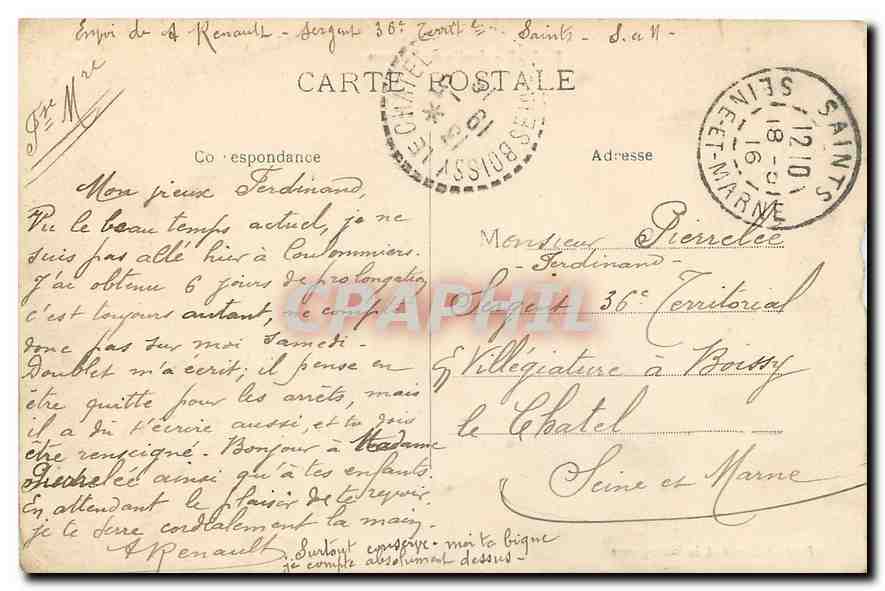 Envoi de A Renault - Sergent 36e Territ le - Saints - S. et M -
CARTE POSTALE
Fre Mre
Correspondance
Adresse
SAINTS
12 10
18 - 16
SEINE-ET-MARNE
BOISSY LE CHATEL
Mon vieux Ferdinand,
Vu le beau temps actuel, je ne
suis pas allé hier à Coulommiers.
J'ai obtenu 6 jours de prolongation
c'est toujours autant, ne compte
donc pas sur moi samedi -
Doublet m'a écrit; il pense en
être quitte pour les arrêts, mais
il a dû t'écrire aussi, et tu dois
être renseigné. Bonjour à Madame
Pierrelée ainsi qu'à tes enfants.
En attendant le plaisir de te revoir
je te serre cordialement la main.
A Renault
Surtout conserve-moi ta bique
je compte absolument dessus -
Monsieur Pierrelée
- Ferdinand -
Sergent 36e Territorial
En Villégiature à Boissy
le Chatel
Seine et Marne
CPAPHIL